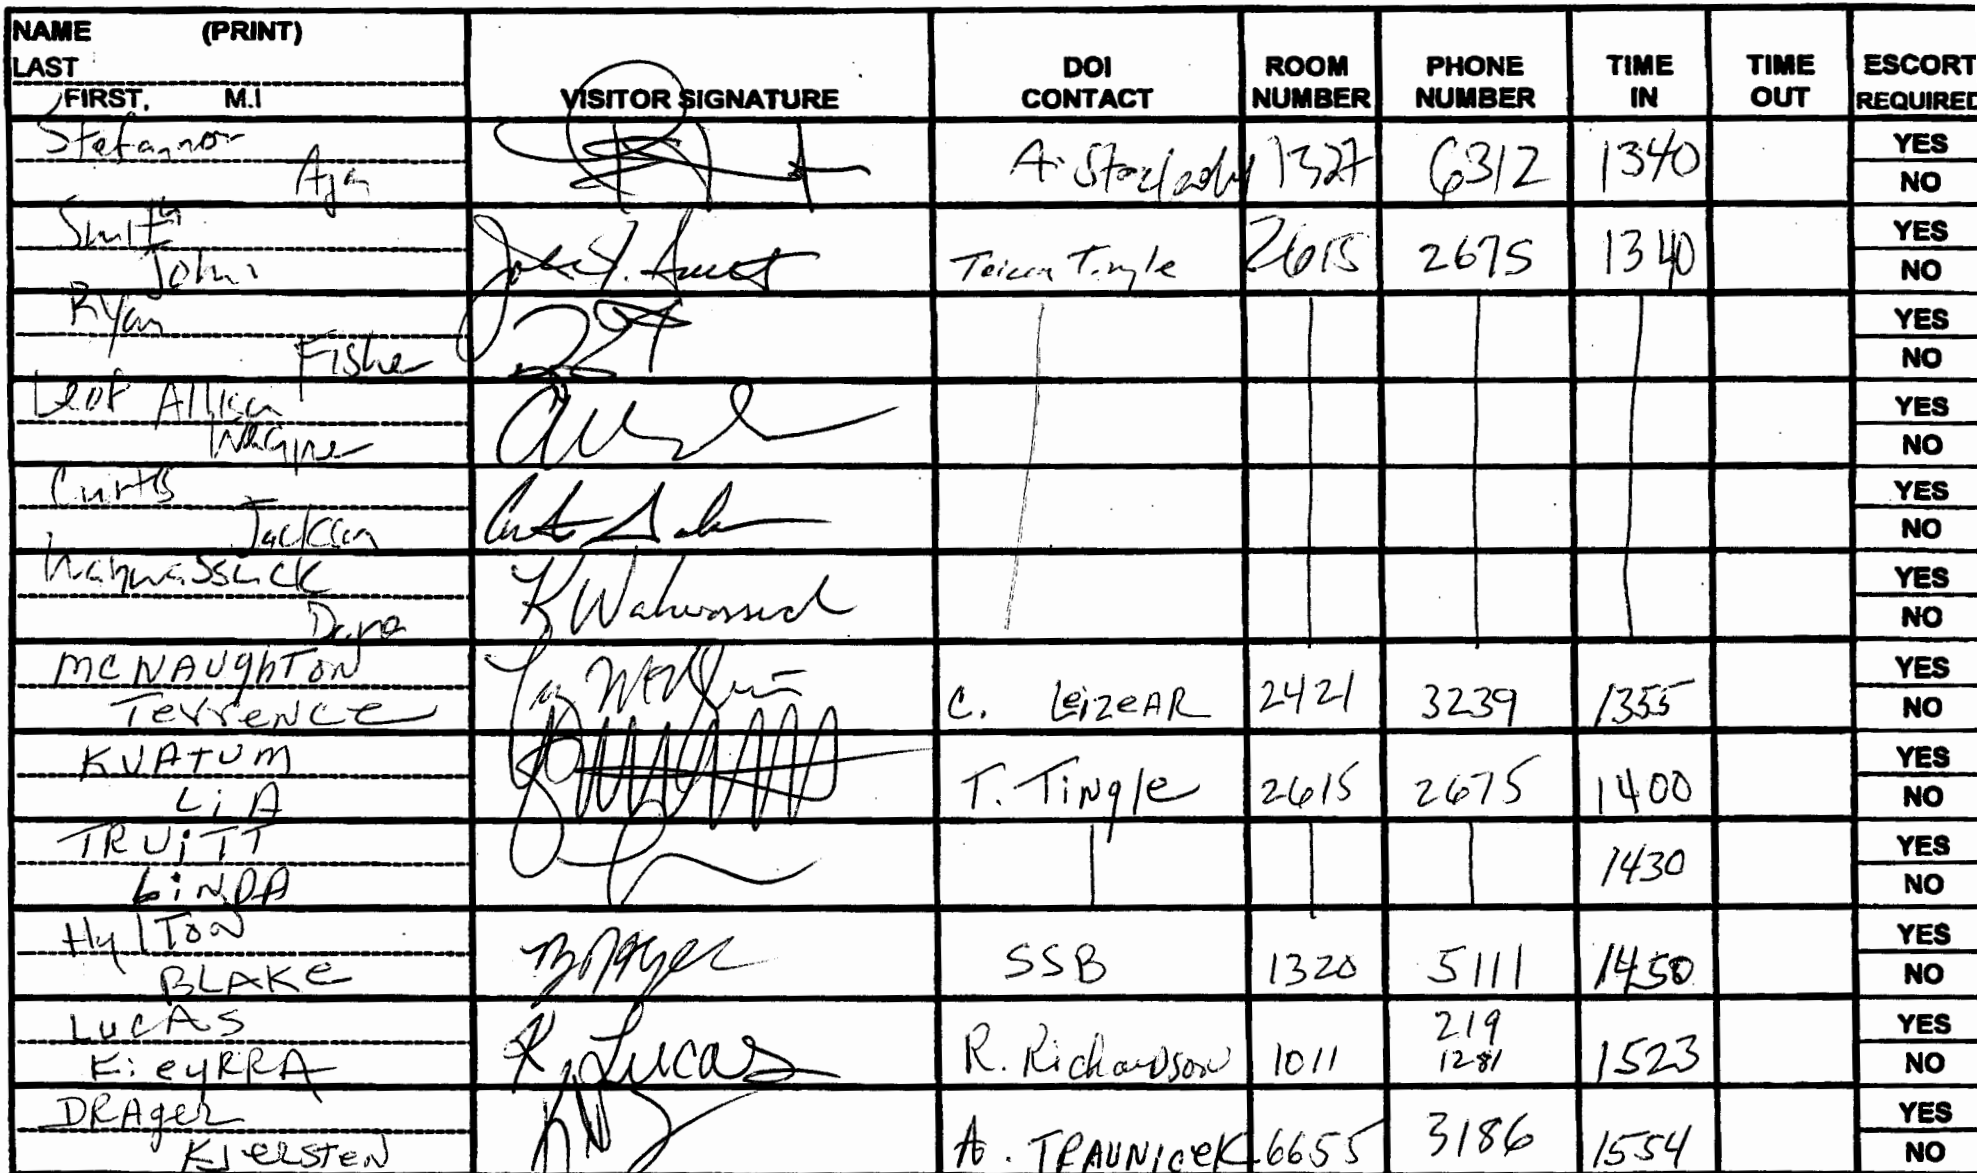 NAME (PRINT)
LAST
FIRST, M.I
VISITOR SIGNATURE
DOI CONTACT
ROOM NUMBER
PHONE NUMBER
TIME IN
TIME OUT
ESCORT REQUIRED
1327 6312 1340 YES
NO
Smith
John
Tingle 2615 2675 1340 YES
NO
Ryan
Fisher
YES
NO
Wagner
YES
NO
Curtis
Jackson
YES
NO
K Wahwassuck
YES
NO
McNAUghTON
TerrENCe
C. LeizeAR 2421 3239 1355 YES
NO
KVATUM
LiA
T. TiNgle 2615 2675 1400 YES
NO
TRUiTT
LiNDA
1430 YES
NO
HylTON
BLAKe
SSB 1320 5111 1450 YES
NO
LUCAS
KieyRRA
K. Lucas
R. RichaRDsoN 1011 219 1281 1523 YES
NO
DRAgeR
KJeRSTeN
A. TRAUNiceK 6655 3186 1554 YES
NO